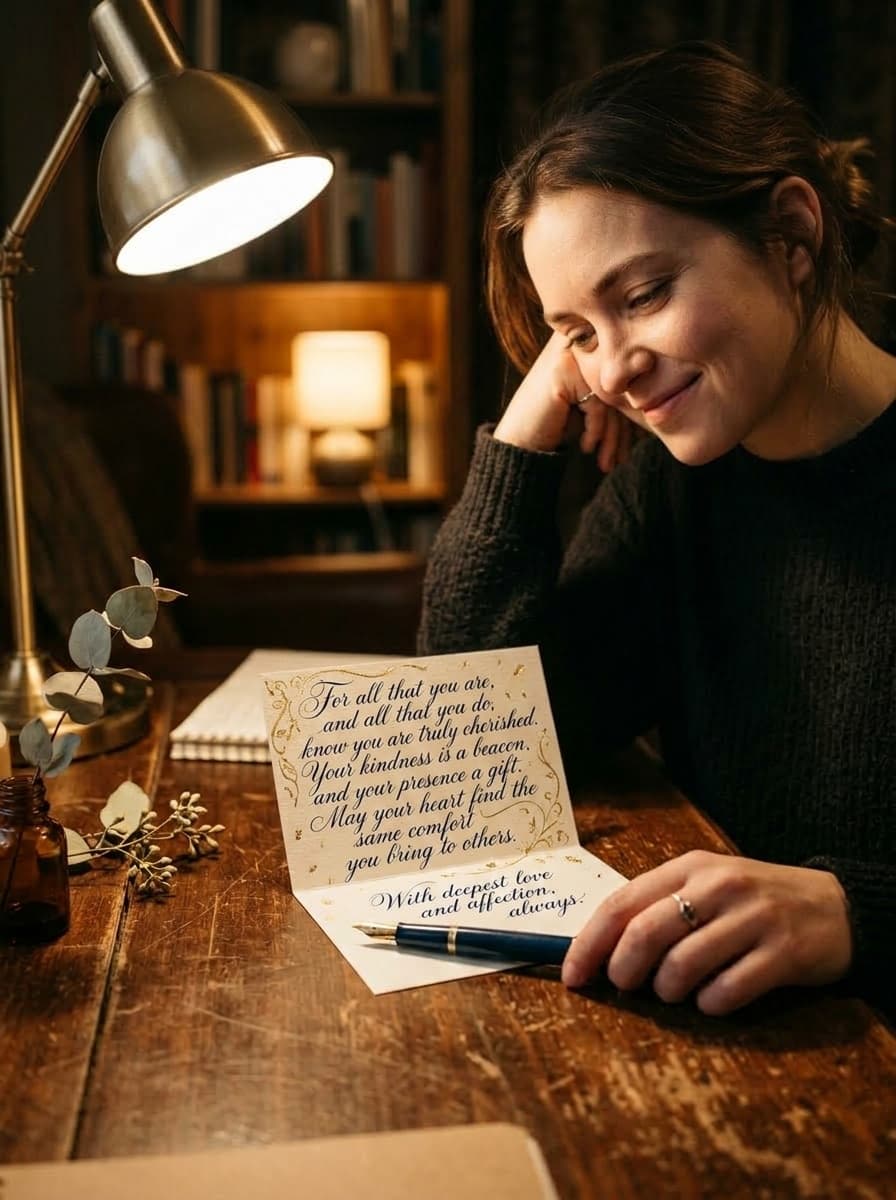 For all that you are,
and all that you do,
know you are truly cherished.
Your kindness is a beacon,
and your presence a gift.
May your heart find the
same comfort
you bring to others.
With deepest love
and affection,
always.